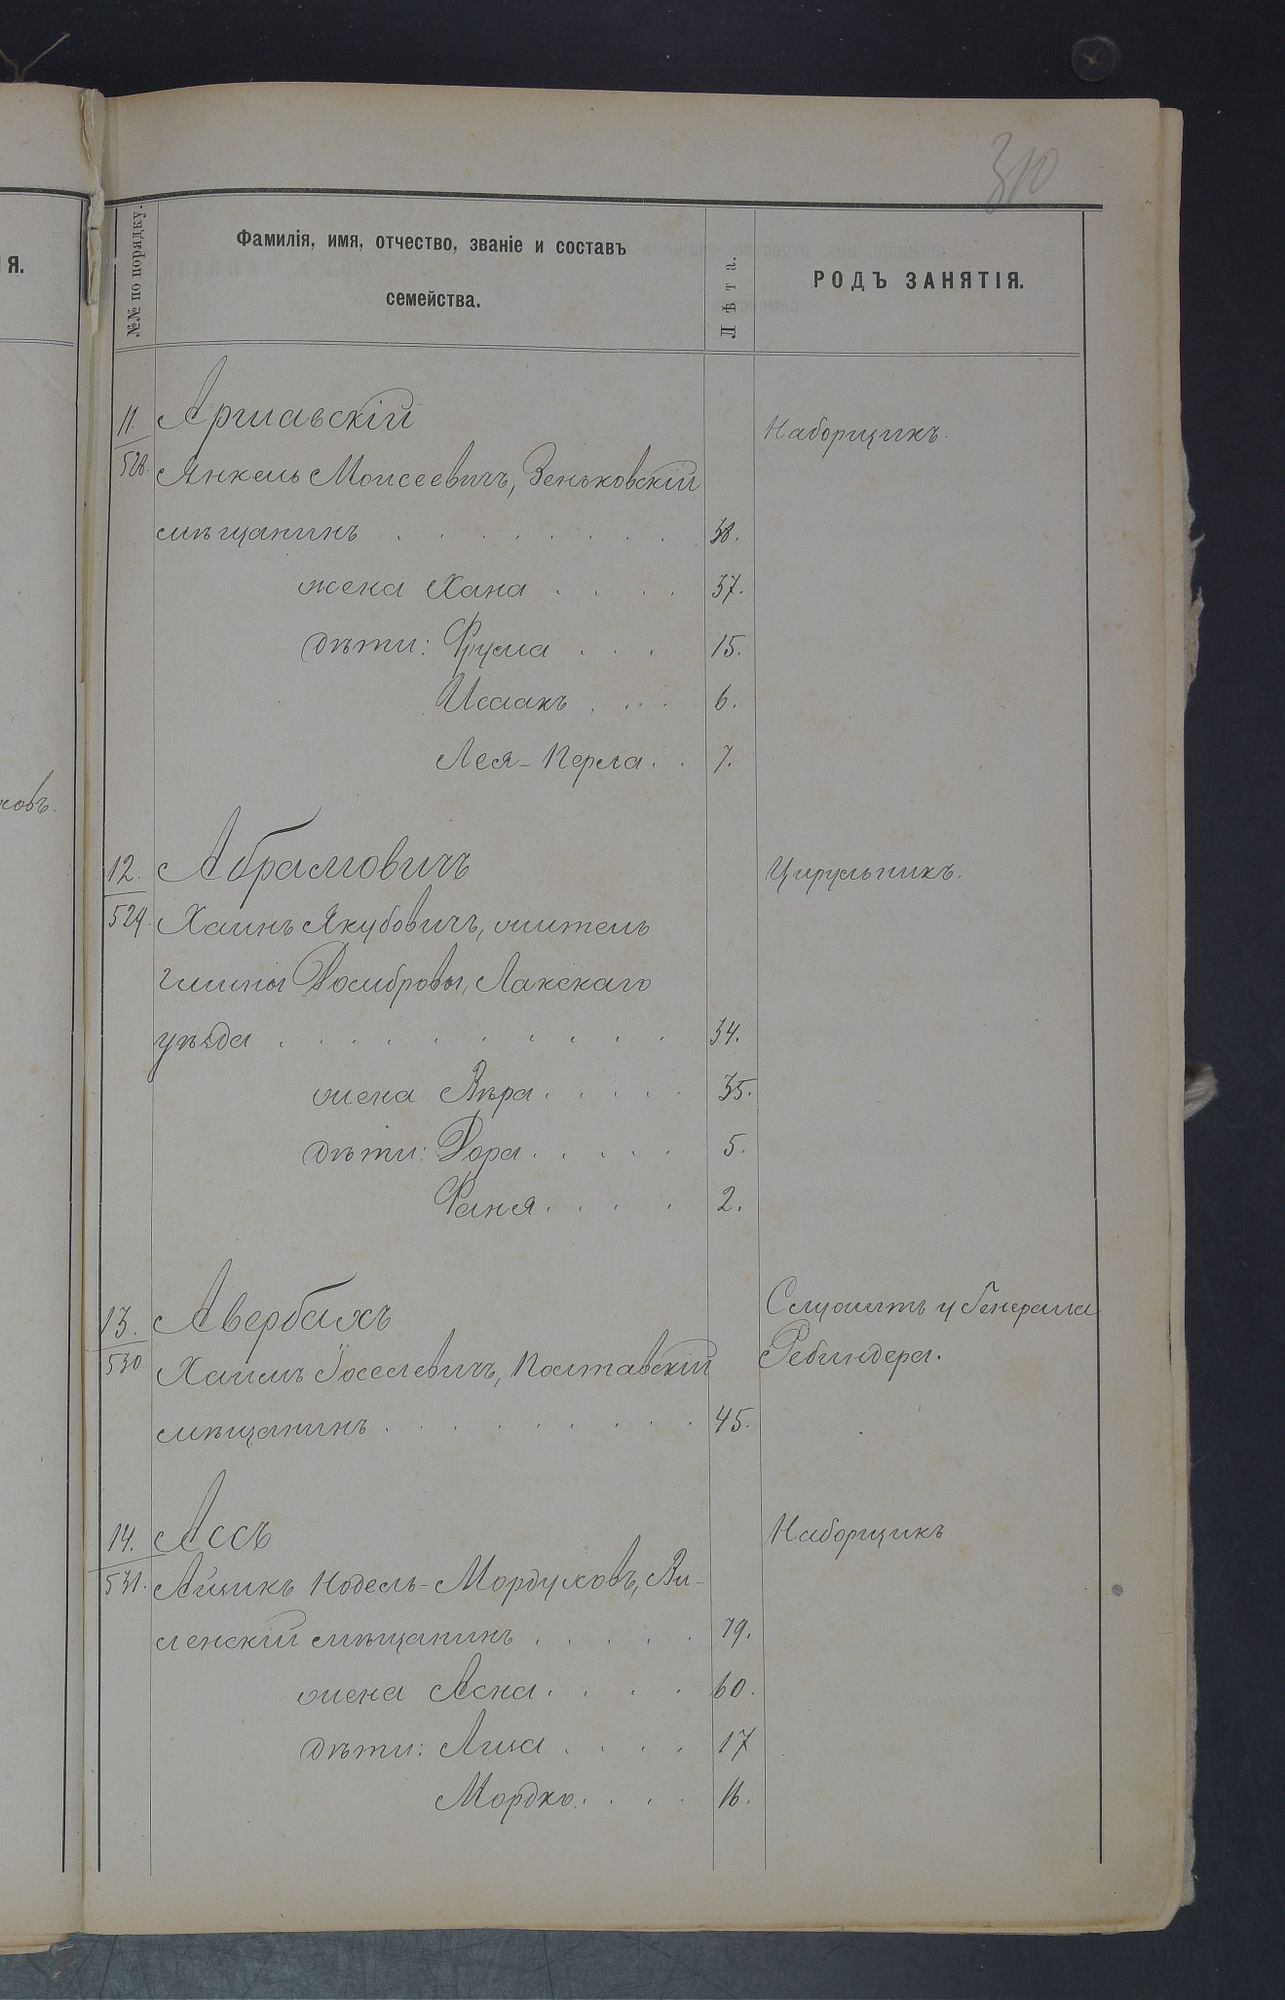 310
№№ по порядку.
Фамилія, имя, отчество, званіе и составъ
семейства.
Лѣта.
РОДЪ ЗАНЯТІЯ.
ія.
ковъ.
11.
528.
Аршавскій
Наборщикъ.
Янкель Моисеевичъ, Зеньковскій
мѣщанинъ . . . . . . . . . 38.
жена Хана . . . . 37.
дѣти: Фрума . . . 15.
Исаакъ . . . 6.
Лея-Перла . . 7.
12.
529.
Абрамовичъ
Цирульникъ.
Хаинъ Якубовичъ, житель
гмины Домбровы, Лакскаго
уѣзда . . . . . . . . . . 34.
жена Вѣра . . . . . 35.
дѣти: Дора . . . . . 5.
Фаня . . . . 2.
13.
530
Авербахъ
Служитъ у Генерала
Ребиндера.
Хаимъ Іоселевичъ, Полтавскій
мѣщанинъ . . . . . . . . . 45.
14.
531.
Ассъ
Наборщикъ
Айзикъ Нодель-Мордуховъ, Ви-
ленскій мѣщанинъ . . . . . 79.
жена Асна . . . . 60.
дѣти: Лиза . . . . 17
Мордко . . . . 16.